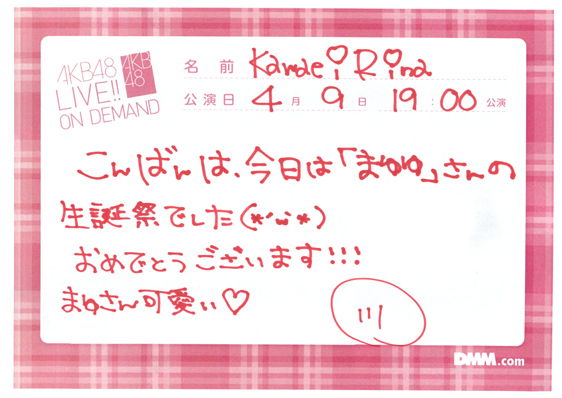 AKB48
LIVE!!
ON DEMAND
AKB
48
名前 Kawaei Rina
公演日 4月 9日 19:00公演
こんばんは、今日は「まゆゆ」さんの
生誕祭でした(*´ω`*)
おめでとうございます!!!
まゆさん可愛い♡
川
DMM.com